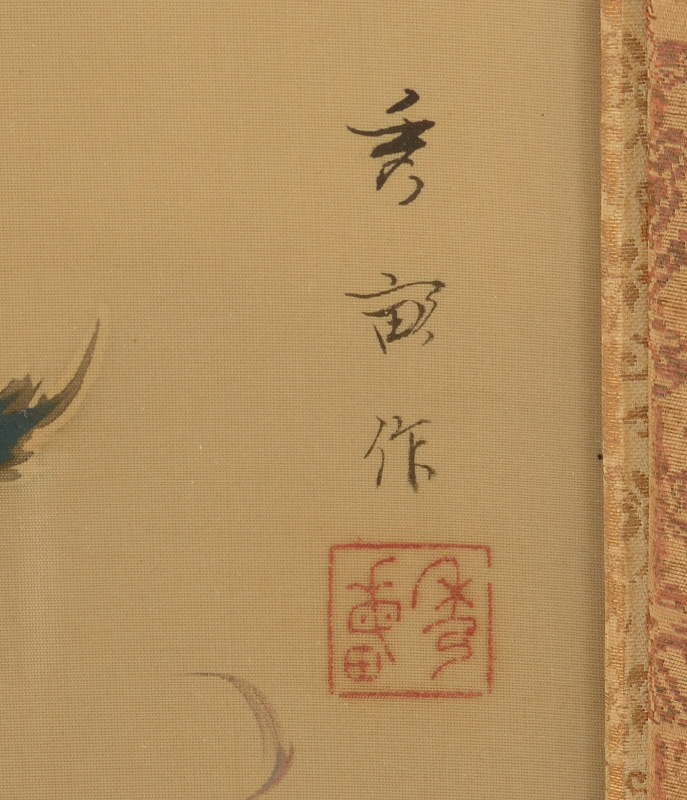 秀畝作
秀畝